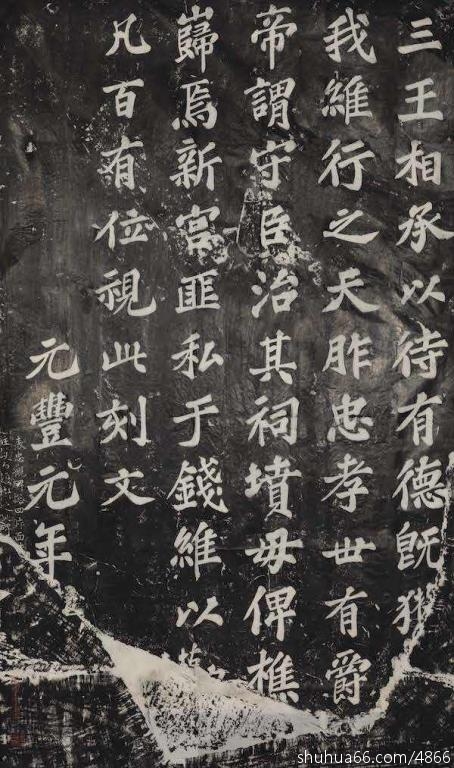 三王相承以待有德既獲
我維行之天胙忠孝世有爵
帝謂守臣治其祠墳毋俾樵
巋焉新宮匪私于錢維以
凡百有位視此刻文
元豐元年
shuhua66.com/4866